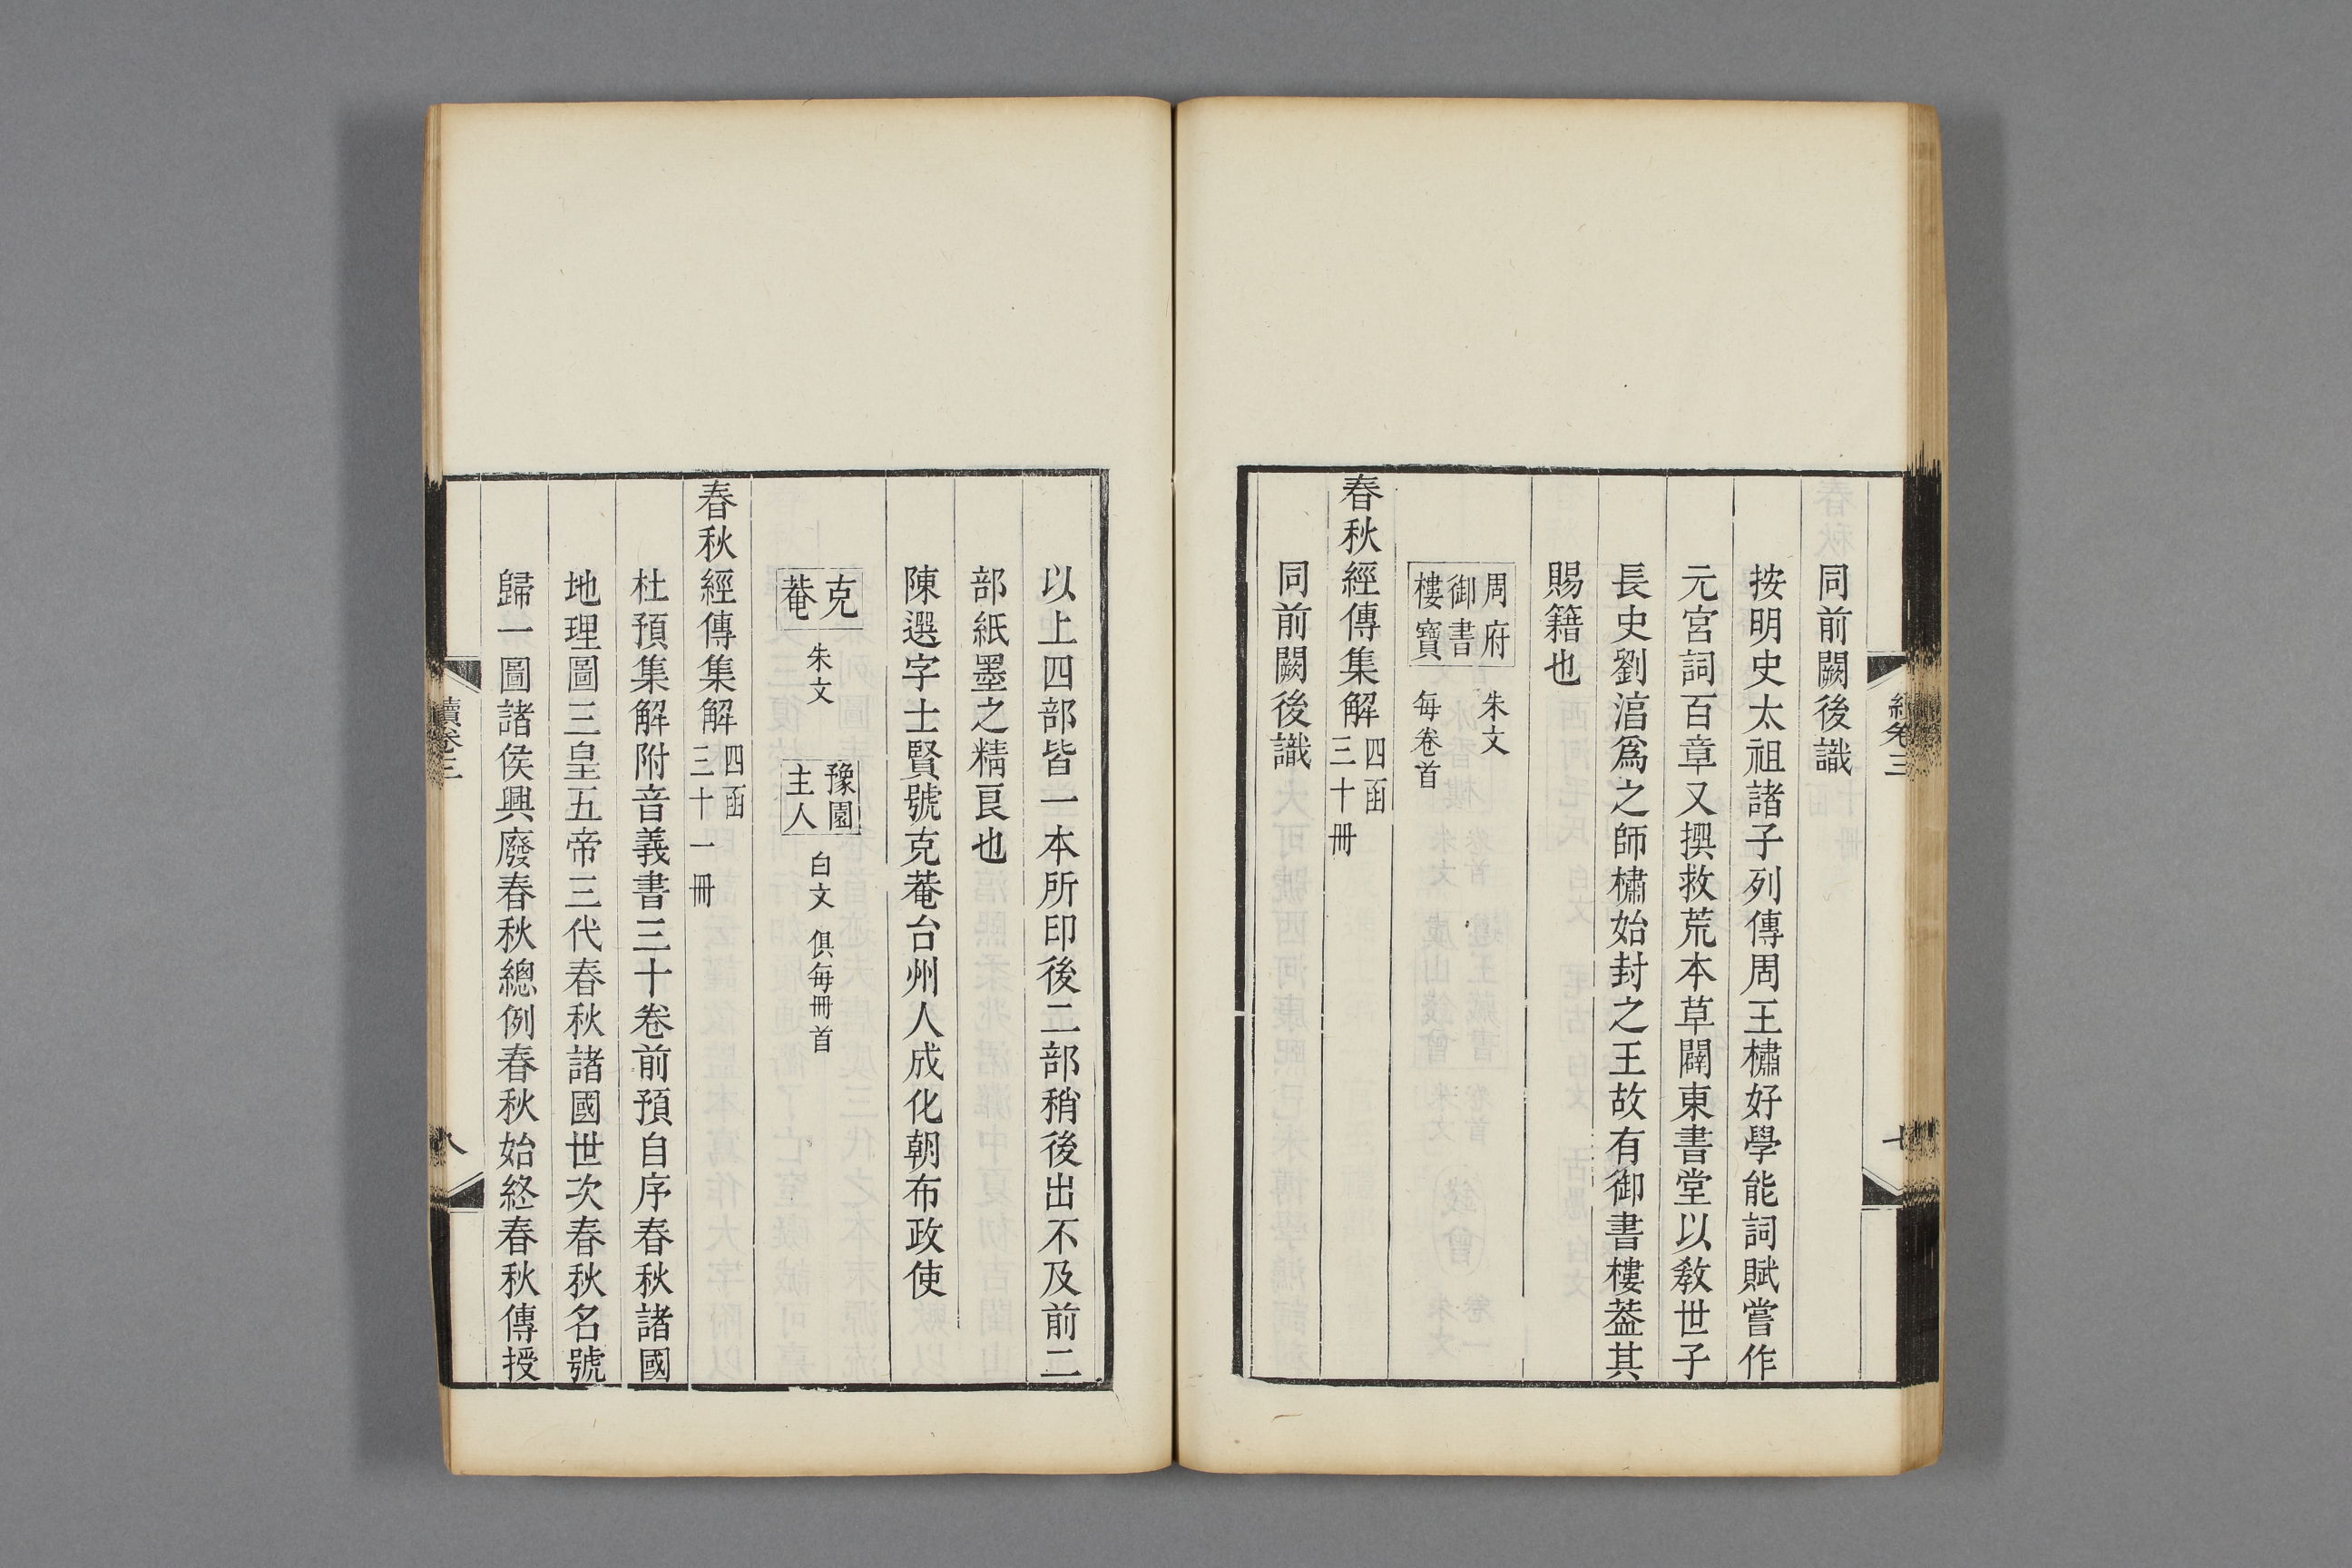 同前闕後識
按明史太祖諸子列傳周王橚好學能詞賦嘗作
元宮詞百章又撰救荒本草闢東書堂以敎世子
長史劉淐爲之師橚始封之王故有御書樓葢其
賜籍也
周府
御書
樓寶
朱文
每卷首
春秋經傳集解四函三十冊
同前闕後識
卷三
七
以上四部皆一本所印後二部稍後出不及前二
部紙墨之精良也
陳選字士賢號克菴台州人成化朝布政使
克
菴
朱文
豫園
主人
白文 俱每冊首
春秋經傳集解四函三十一冊
杜預集解附音義書三十卷前預自序春秋諸國
地理圖三皇五帝三代春秋諸國世次春秋名號
歸一圖諸侯興廢春秋總例春秋始終春秋傳授
續卷三
八